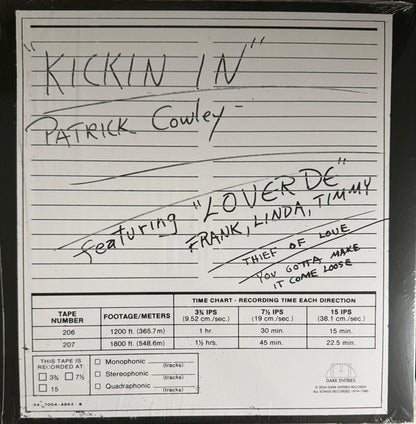 "KICKIN IN"
PATRICK COWLEY-
featuring "LOVERDE"
FRANK, LINDA, TIMMY
THIEF OF LOVE
YOU GOTTA MAKE
IT COME LOOSE
TIME CHART - RECORDING TIME EACH DIRECTION
TAPE NUMBER FOOTAGE/METERS 3¾ IPS (9.52 cm./sec.) 7½ IPS (19 cm./sec.) 15 IPS (38.1 cm./sec.)
206 1200 ft. (365.7m) 1 hr. 30 min. 15 min.
207 1800 ft. (548.6m) 1½ hrs. 45 min. 22.5 min.
THIS TAPE IS
RECORDED AT:
3¾ 7½
15
Monophonic (tracks)
Stereophonic (tracks)
Quadraphonic (tracks)
DARK ENTRIES